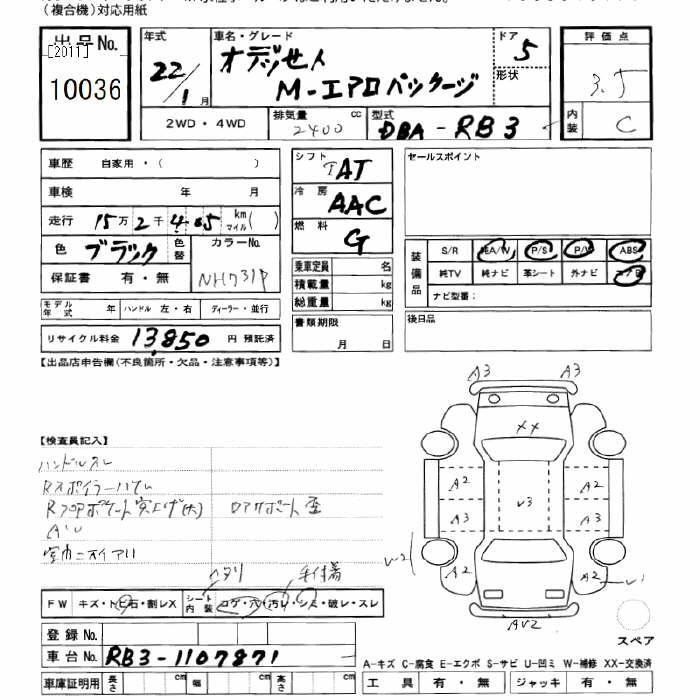 （複合機）対応用紙
出品No.
[2011]
10036
年式
22/1月
車名・グレード
オデッセイ
M-エアロパッケージ
ドア
5
形状
評価点
3.5
内装
C
2WD・4WD
排気量 cc
2400
型式
DBA-RB3
車歴 自家用・( )
車検 年 月
走行 15万2千405 km マイル( )
色 ブラック 色替 カラーNo.
NH731P
保証書 有・無
シフト
AT
冷房
AAC
燃料
G
乗車定員 名
積載量 kg
総重量 kg
セールスポイント
装備品
S/R 純A/W P/S P/W ABS
純TV 純ナビ 革シート 外ナビ エアB
ナビ型番：
モデル年式 年 ハンドル 左・右 ディーラー・並行
リサイクル料金 13,850 円 預託済
書類期限
月 日
後日品
【出品店申告欄(不良箇所・欠品・注意事項等)】
A3 A3
XX
A2 A2
V3
A3 A3
A2 A2
AV2
【検査員記入】
ハンドルスレ
室内ニオイアリ
ヘタリ
FW キズ・トビ石・割レX シート内装 コゲ・穴・汚レ・シミ・破レ・スレ
スペア
登録No.
車台No. RB3-1107871
A-キズ C-腐食 E-エクボ S-サビ U-凹ミ W-補修 XX-交換済
車庫証明用 長さ cm 幅 cm 高さ cm
工具 有・無 ジャッキ 有・無